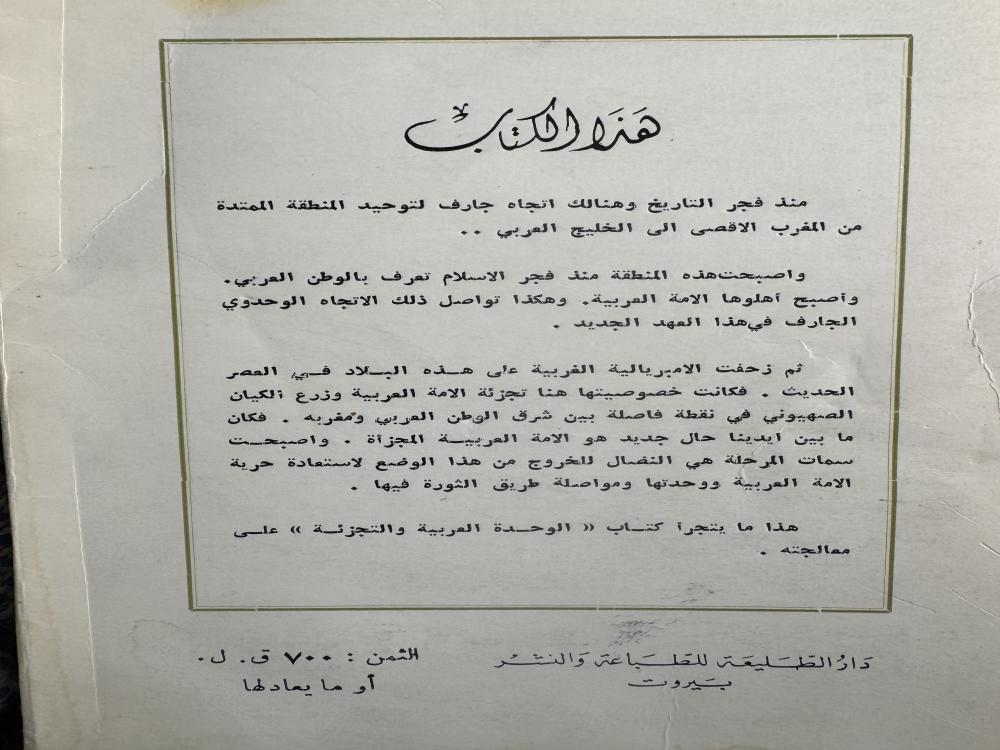 هَذَا الكتابُ
منذ فجر التاريخ وهنالك اتجاه جارف لتوحيد المنطقة الممتدة
من المغرب الاقصى الى الخليج العربي ..
واصبحت هذه المنطقة منذ فجر الاسلام تعرف بالوطن العربي.
وأصبح أهلوها الامة العربية. وهكذا تواصل ذلك الاتجاه الوحدوي
الجارف في هذا العهد الجديد .
ثم زحفت الامبريالية الغربية على هذه البلاد في العصر
الحديث . فكانت خصوصيتها هنا تجزئة الامة العربية وزرع الكيان
الصهيوني في نقطة فاصلة بين شرق الوطن العربي ومغربه . فكان
ما بين ايدينا حال جديد هو الامة العربية المجزأة . واصبحت
سمات المرحلة هي النضال للخروج من هذا الوضع لاستعادة حرية
الامة العربية ووحدتها ومواصلة طريق الثورة فيها .
هذا ما يتجرأ كتاب « الوحدة العربية والتجزئة » على
معالجته .
دَارُ الطّليعَة للطّبَاعَة وَالنشْر
بَيروت
الثمن : ٧٠٠ ق. ل.
أو ما يعادلها